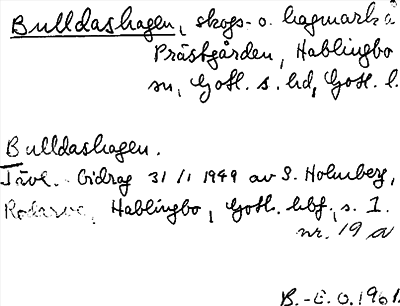 Bulldashagen, skogs- o. hagmark å
Prästgården, Hablingbo
sn, Gotl. s. hd, Gotl. l.
Bulldashagen.
Tävl. bidrag 31/1 1949 av S. Holmberg,
Hablingbo, Gotl. hbf, s. 1.
nr. 19 a
B.-E. O. 1961.